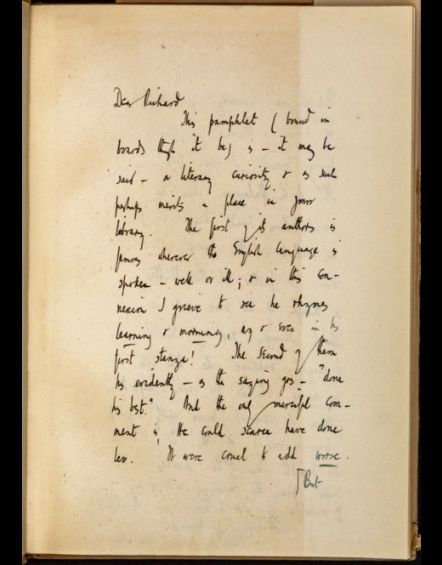 Dear Richard
This pamphlet (bound in
boards though it be) is - it may be
said - a literary curiosity & as such
perhaps merits a place in your
library. The first of its authors is
famous wherever the English language is
spoken - well or ill; & in this con-
nexion I grieve to see he rhymes
learning & morning, ay & even in his
first stanza! The second of them
has evidently - as the saying goes - "done
his best." And the one merciful com-
ment is, He could scarce have done
less. It were cruel to add worse.
But